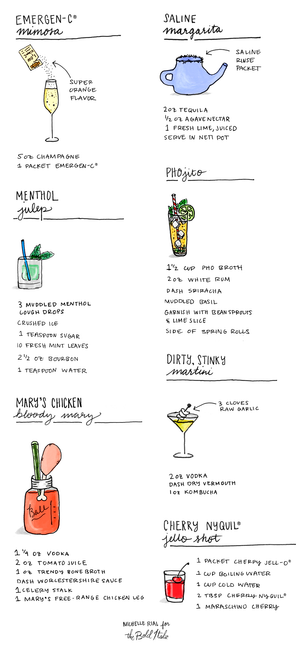 EMERGEN-C®
mimosa
SUPER
ORANGE
FLAVOR
5 OZ CHAMPAGNE
1 PACKET EMERGEN-C®
MENTHOL
julep
3 MUDDLED MENTHOL
COUGH DROPS
CRUSHED ICE
1 TEASPOON SUGAR
10 FRESH MINT LEAVES
2 1/2 OZ BOURBON
1 TEASPOON WATER
MARY'S CHICKEN
bloody mary
Ball
1 1/4 OZ VODKA
2 OZ TOMATO JUICE
1 OZ TRENDY BONE BROTH
DASH WORCESTERSHIRE SAUCE
1 CELERY STALK
1 MARY'S FREE-RANGE CHICKEN LEG
SALINE
margarita
SALINE
RINSE
PACKET
2 OZ TEQUILA
1/2 OZ AGAVE NECTAR
1 FRESH LIME, JUICED
SERVE IN NETI POT
PHOjito
1 1/2 CUP PHO BROTH
2 OZ WHITE RUM
DASH SRIRACHA
MUDDLED BASIL
GARNISH WITH BEAN SPROUTS
& LIME SLICE
SIDE OF SPRING ROLLS
DIRTY, STINKY
martini
3 CLOVES
RAW GARLIC
2 OZ VODKA
DASH DRY VERMOUTH
1 OZ KOMBUCHA
CHERRY NYQUIL®
jello shot
1 PACKET CHERRY JELL-O®
1 CUP BOILING WATER
1 CUP COLD WATER
2 TBSP CHERRY NYQUIL®
1 MARASCHINO CHERRY
MICHELLE RIAL for
the Bold Italic